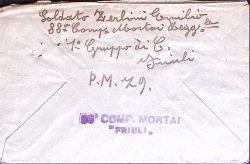 Soldato Zerlini Emilio
88ª Comp. Mortai Regg.
1º Gruppo di C.
Friuli
P.M. 79.
88ª COMP. MORTAI
"FRIULI"